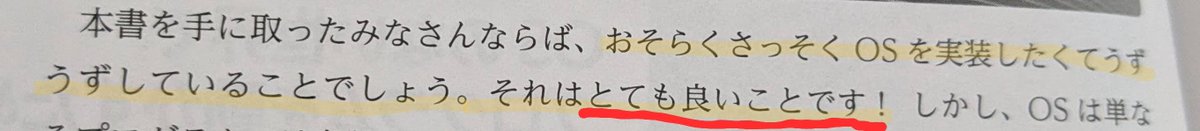 本書を手に取ったみなさんならば、おそらくさっそく OS を実装したくてうず
うずしていることでしょう。それはとても良いことです！ しかし、OS は単な